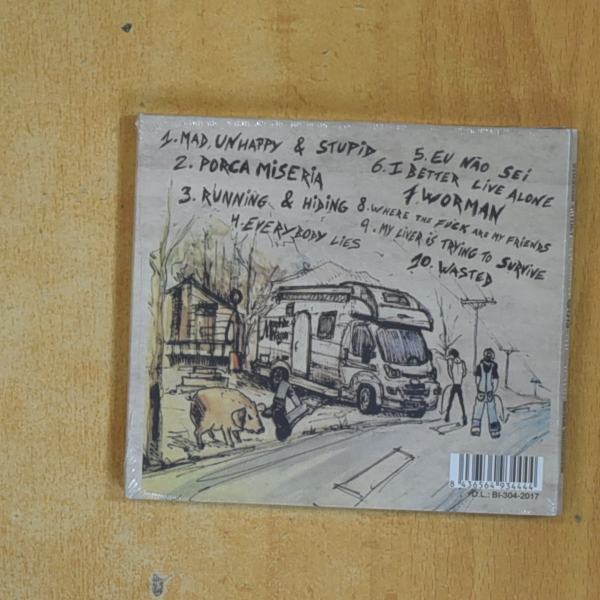 1. MAD, UNHAPPY & STUPID
2. PORCA MiSERiA
3. RUNNiNG & HiDiNG
4. EVERYBODY LiES
5. EU NÃO SEi
6. I BETTER LiVE ALONE
7. WORMAN
8. WHERE THE FUCK ARE MY FRiENDS
9. MY LiVER iS TRYiNG TO SURViVE
10. WASTED
8 436564 934444
D.L.: BI-304-2017